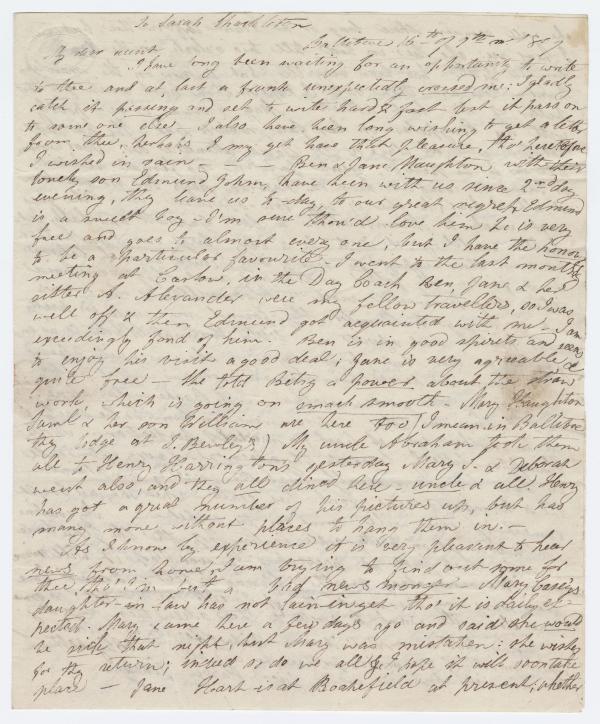 To Sarah Shackleton
Ballitore 16th of 9th mo 1807
My dear aunt
I have long been waiting for an opportunity to write
to thee and at last a frank unexpectedly crossed me; I gladly
catch it passing and set to write hard & fast lest it pass on
to some one else — I also have been long wishing to get a letter
from thee, perhaps I may yet have that pleasure, tho' heretofore
I wished in vain — — — Ben & Jane Haughton with their
lovely son Edmund John, have been with us since 2nd day
evening, they leave us to-day, to our great regret, Edmund
is a sweet boy — I'm sure thou'd love him he is very
free and goes to almost every one, but I have the honor
to be a particular favourite — I went to the last month's
meeting at Carlow, in the Day Coach Ben, Jane & her
sister A. Alexander were my fellow travellers, so I was
well off & then Edmund got acquainted with me — I am
exceedingly fond of him. Ben is in good spirits and seems
to enjoy his visit a good deal; Jane is very agreeable &
quite free — she told Betsy a power about the straw
work, which is going on smack smooth — Mary Haughton
Saml & her son William are here too (I mean in Ballitore
they lodge at J. Bewley's) My uncle Abraham took them
all to Henry Harringtons yesterday Mary S. & Deborah
went also, and they all dined here — uncle & all Henry
has got a great number of his pictures up, but has
many more without places to hang them in. —
As I know by experience it is very pleasant to hear
news from home, I am trying to find out some for
thee, tho' I'm but a bad news monger — Mary Casey's
daughter-in-law has not lain-in yet tho' it is daily ex-
pected. Mary came here a few days ago and said she would
be sick that night, but Mary was mistaken: she wishes
for thy return; indeed so do we all & I hope it will soon take
place — Jane Hart is at Boakefield at present; whether